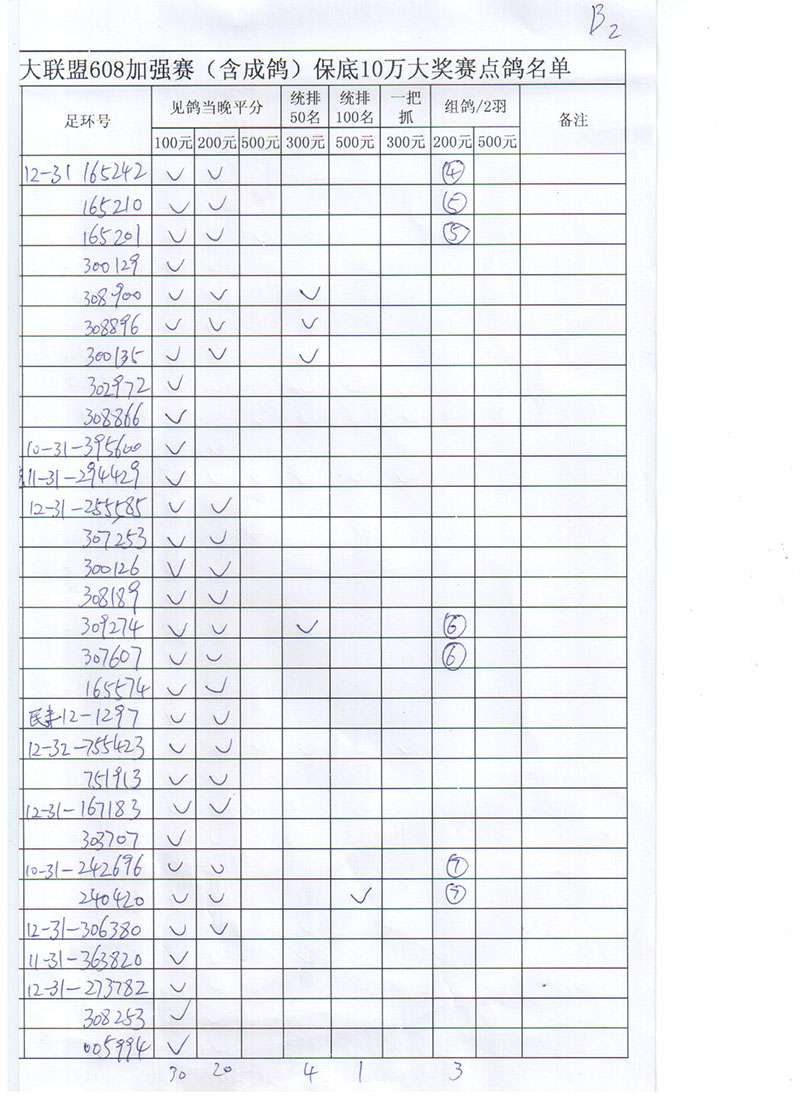 B2
大联盟608加强赛（含成鸽）保底10万大奖赛点鸽名单
足环号 见鸽当晚平分 统排50名 统排100名 一把抓 组鸽/2羽 备注
100元 200元 500元 300元 500元 300元 200元 500元
12-31 165242 ✓ ✓ ④
165210 ✓ ✓ ⑤
165201 ✓ ✓ ⑤
300129 ✓
308900 ✓ ✓ ✓
308896 ✓ ✓ ✓
300135 ✓ ✓ ✓
302972 ✓
308866 ✓
10-31-395600 ✓
11-31-294429 ✓
12-31-255585 ✓ ✓
307253 ✓ ✓
300126 ✓ ✓
308189 ✓ ✓
309274 ✓ ✓ ✓ ⑥
307607 ✓ ✓ ⑥
165574 ✓ ✓
12-1297 ✓ ✓
12-32-755423 ✓ ✓
751913 ✓ ✓
12-31-167183 ✓ ✓
303707 ✓
10-31-242696 ✓ ✓ ⑦
240420 ✓ ✓ ✓ ⑦
12-31-306380 ✓ ✓
11-31-363820 ✓
12-31-273782 ✓
308253 ✓
005994 ✓
30 20 4 1 3